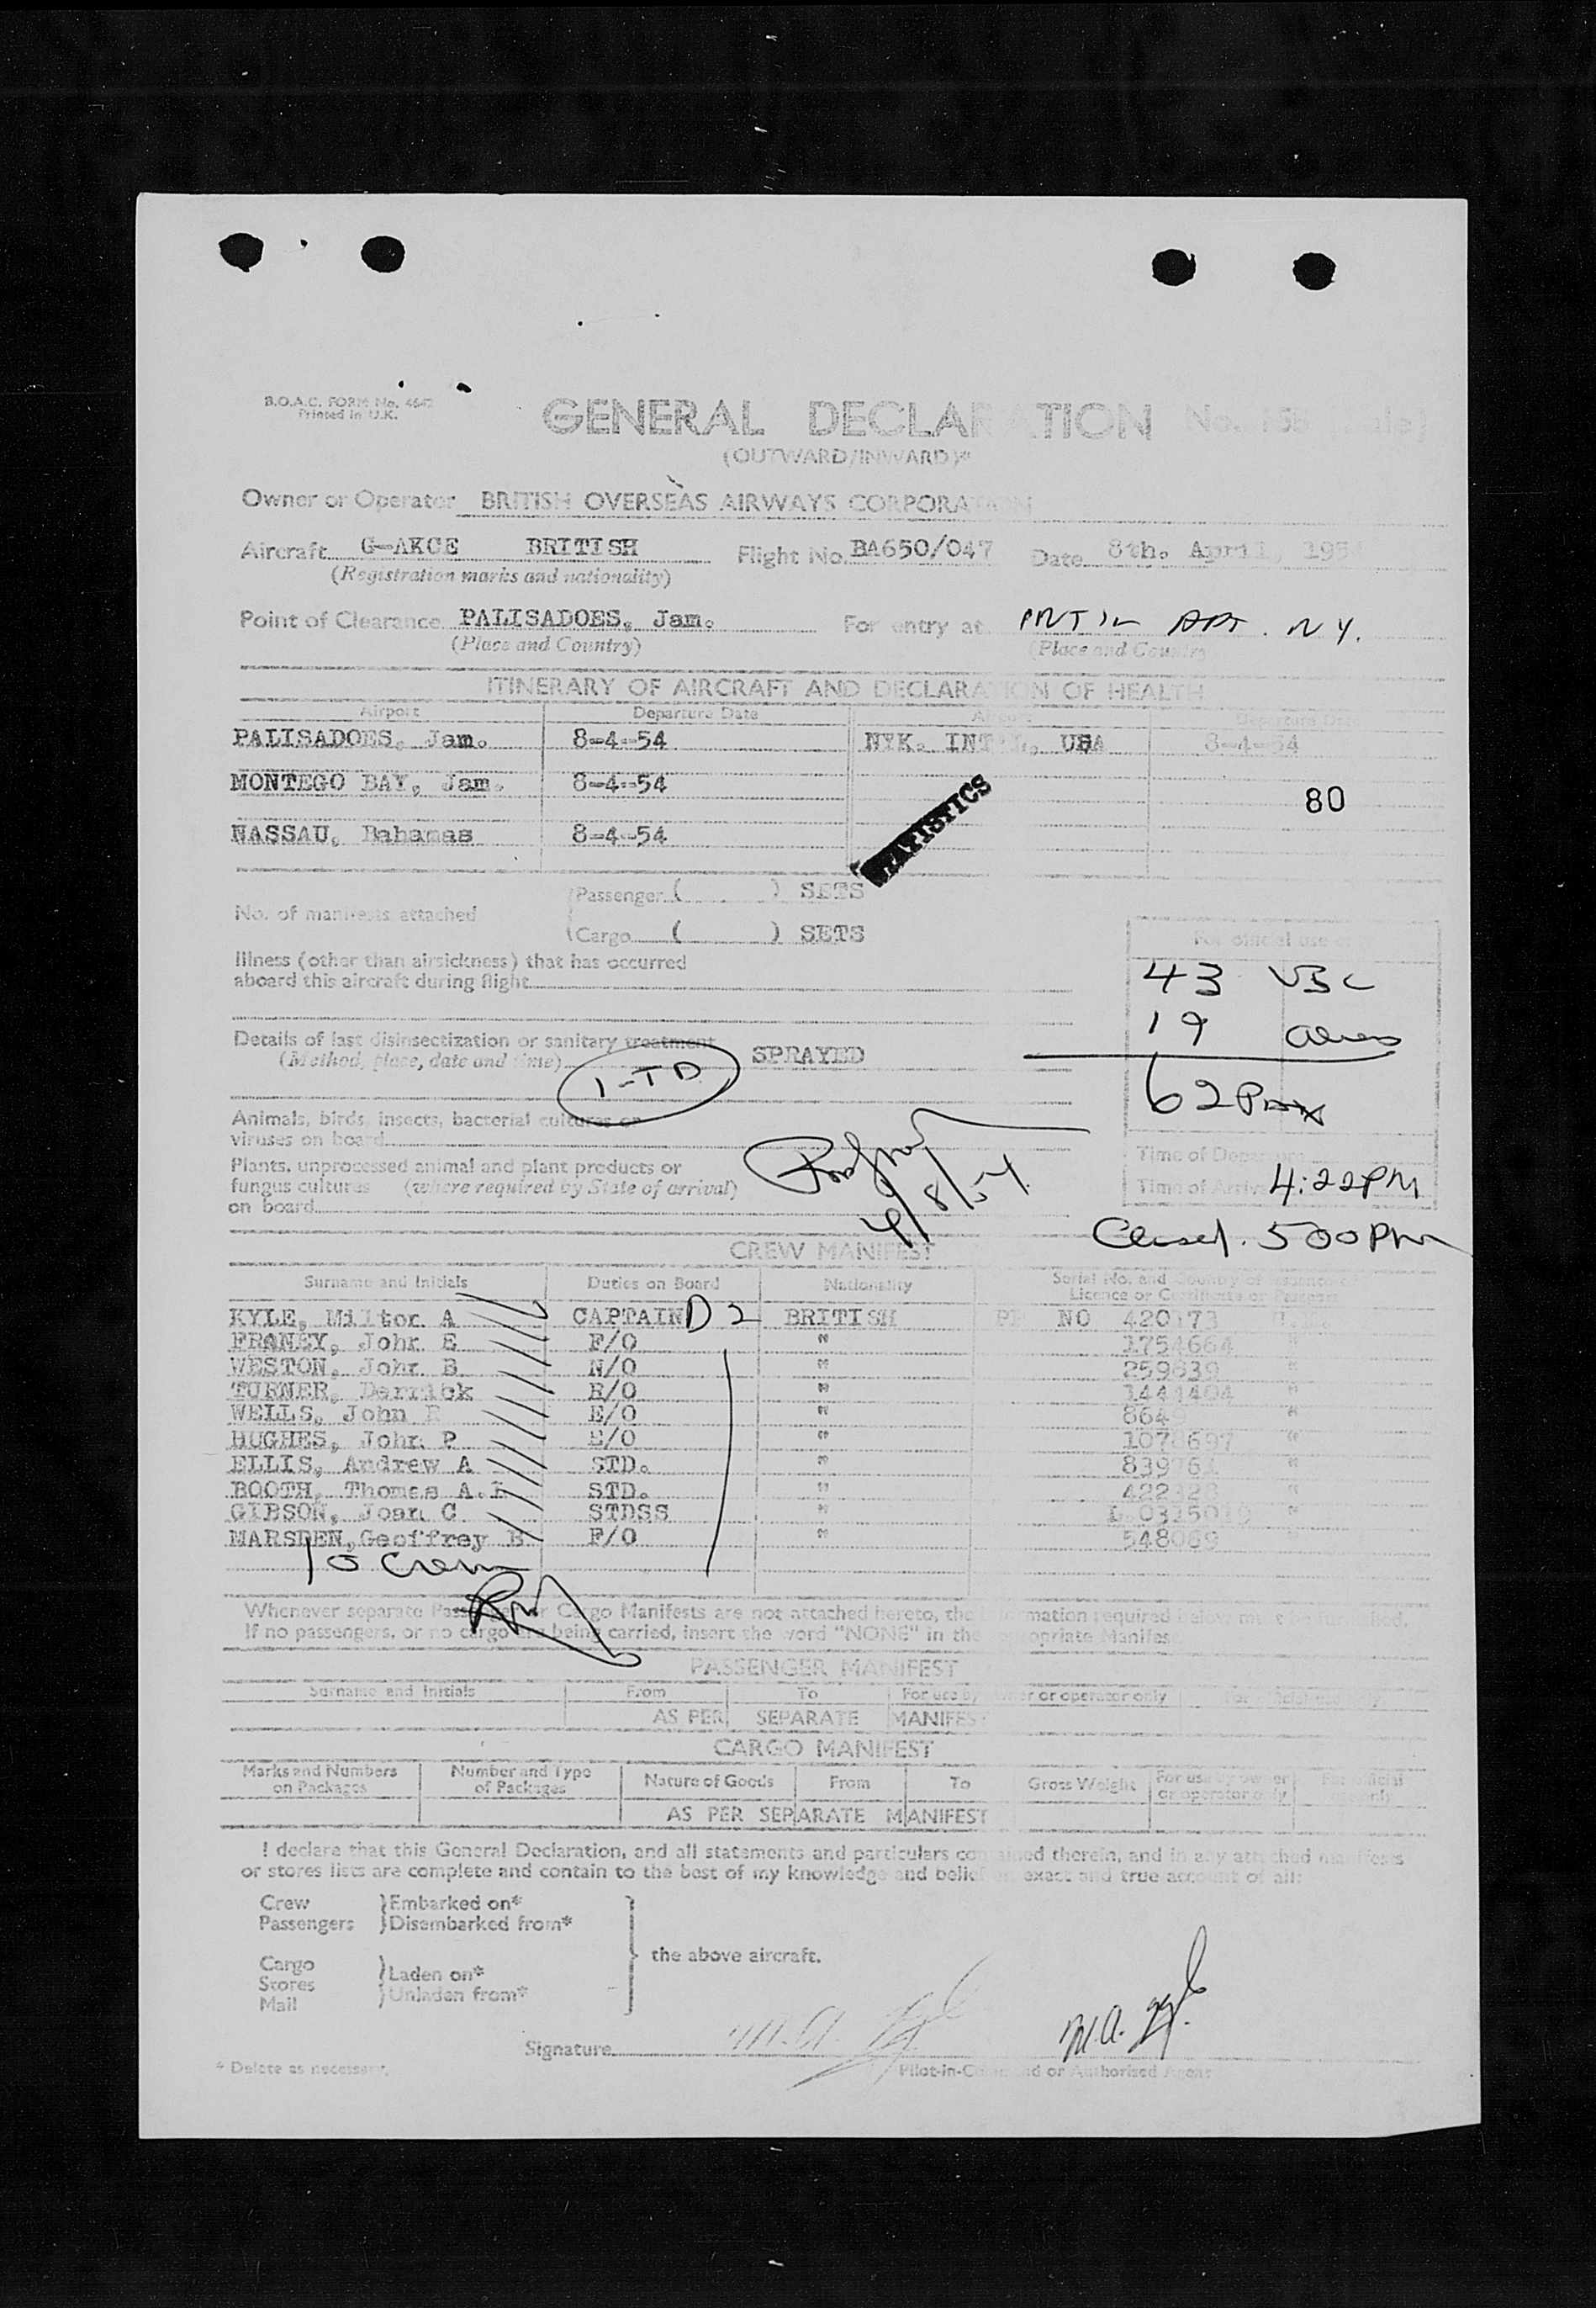 B.O.A.C. FORM No.
Printed in U.K.
GENERAL DECLARATION
(OUTWARD/INWARD)*
Owner or Operator BRITISH OVERSEAS AIRWAYS CORPORATION
Aircraft G-AKCE BRITISH Flight No. BA650/047 Date 8th. April, 195
(Registration marks and nationality)
Point of Clearance PALISADOES, Jam. For entry at APT. NY.
(Place and Country) (Place and Country
ITINERARY OF AIRCRAFT AND DECLARATION OF HEALTH
Airport Departure Date Airport Departure Date
PALISADOES, Jam. 8-4-54 NYK. INT'L, USA 8-4-54
MONTEGO BAY, Jam. 8-4-54
80
NASSAU, Bahamas 8-4-54
STATISTICS
No. of manifests attached
Passenger ( ) SETS
Cargo ( ) SETS
For official use only
Illness (other than airsickness) that has occurred
aboard this aircraft during flight
43
19
62
Details of last disinsectization or sanitary treatment
(Method, place, date and time) SPRAYED
1-TD
Animals, birds, insects, bacterial cultures or
viruses on board
Plants, unprocessed animal and plant products or
fungus cultures (where required by State of arrival)
on board
4/8/54
Time of Departure
Time of Arrival 4:22PM
Closed. 500PM
CREW MANIFEST
Surname and Initials Duties on Board Nationality Serial No. and Country of Issuance of
Licence or Certificate or Passport
KYLE, Milton A CAPTAIN D2 BRITISH PP NO 420173
FRANEY, John E F/O " 1754664
WESTON, John B N/O " 259639 "
TURNER, Derrick R/O " 1444404 "
WELLS, John E/O " 864 "
HUGHES, John P E/O " 1078697 "
ELLIS, Andrew A STD. " 839761 "
BOOTH, Thomas A. STD. " 422328 "
GIBSON, Joan C STDSS " L 0325019 "
MARSDEN, Geoffrey B F/O " 548069
10 Crew
Whenever separate Passenger or Cargo Manifests are not attached hereto, the information required
If no passengers, or no cargo are being carried, insert the word "NONE" in the appropriate Manifest
PASSENGER MANIFEST
Surname and Initials From To For use by owner or operator only For official use only
AS PER SEPARATE MANIFEST
CARGO MANIFEST
Marks and Numbers on Packages Number and Type of Packages Nature of Goods From To Gross Weight For use by owner or operator only For official use only
AS PER SEPARATE MANIFEST
I declare that this General Declaration, and all statements and particulars contained therein, and in any attached manifests
or stores lists are complete and contain to the best of my knowledge and belief an exact and true account of all:
Crew } Embarked on*
Passengers } Disembarked from*
the above aircraft.
Cargo
Stores } Laden on*
Mail } Unladen from*
Signature M.A. Kyle M.A. Kyle
* Delete as necessary. Pilot-in-Command or Authorised Agent